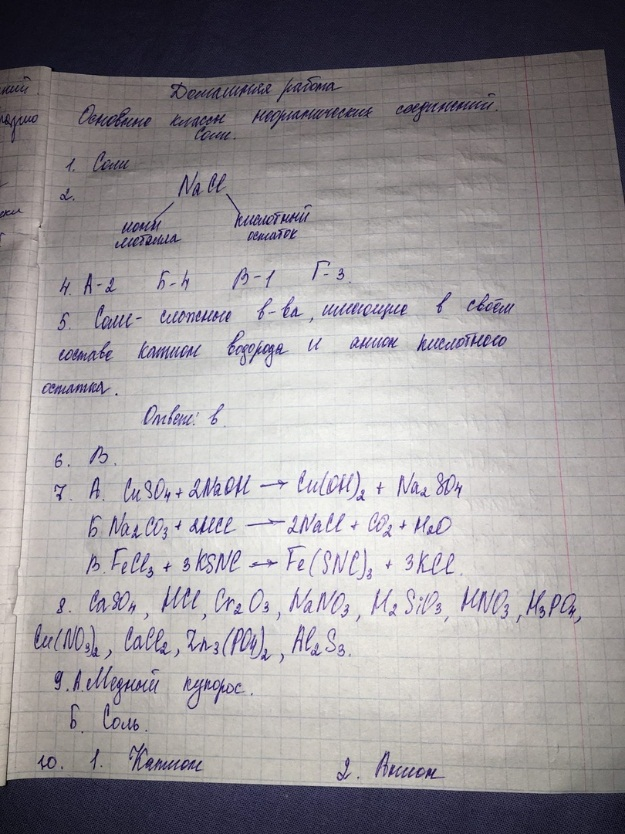 Домашняя работа
Основные классы неорганических соединений.
Соли.
1. Соли
2. NaCl
ионы кислотный
металла остаток
4. А-2 Б-4 В-1 Г-3.
5. Соли- сложные в-ва, имеющие в своём
составе катион водорода и анион кислотного
остатка.
Ответ: в.
6. В.
7. А. CuSO4 + 2NaOH → Cu(OH)2 + Na2SO4
Б. Na2CO3 + 2HCl → 2NaCl + CO2 + H2O
В. FeCl3 + 3KSNC → Fe(SNC)3 + 3KCl.
8. CaSO4, HCl, Cr2O3, NaNO3, H2SiO3, HNO3, H3PO4,
Cu(NO3)2, CaCl2, Zn3(PO4)2, Al2S3.
9. А Медный купорос.
Б. Соль.
10. 1. Катион 2. Анион